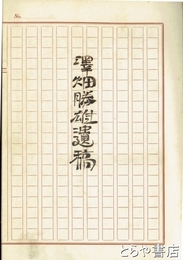 No.
澤畑勝雄遺稿
古書店
とらや書店